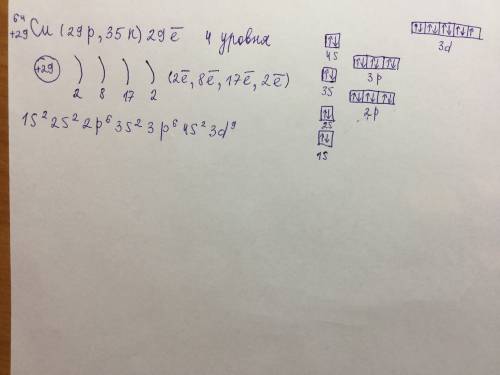 64
+29 Cu (29p, 35n) 29ē 4 уровня
+29 ) ) ) ) (2ē, 8ē, 17ē, 2ē)
2 8 17 2
1S² 2S² 2p⁶ 3S² 3p⁶ 4S² 3d⁹
↑↓ ↑↓ ↑↓ ↑↓ ↑
3d
↑↓
4S
↑↓ ↑↓ ↑↓
3p
↑↓
3S
↑↓ ↑↓ ↑↓
2p
↑↓
2S
↑↓
1S